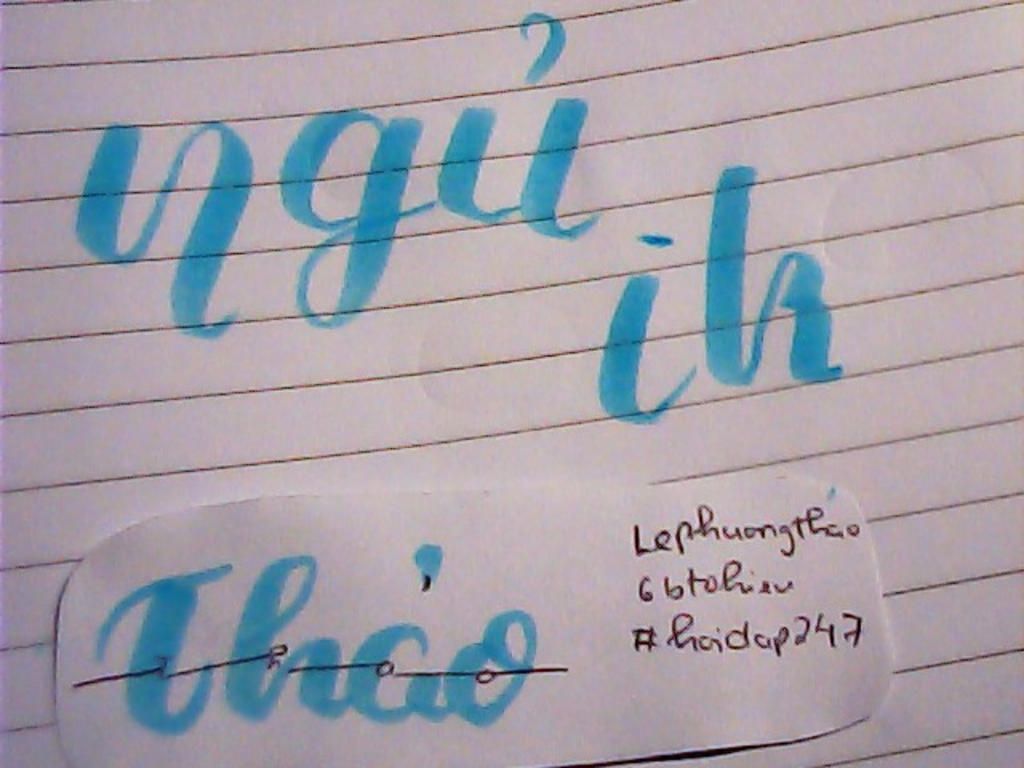 ngủ
ih
Thảo
Lephuongthảo
6btohieu
#hoidap247